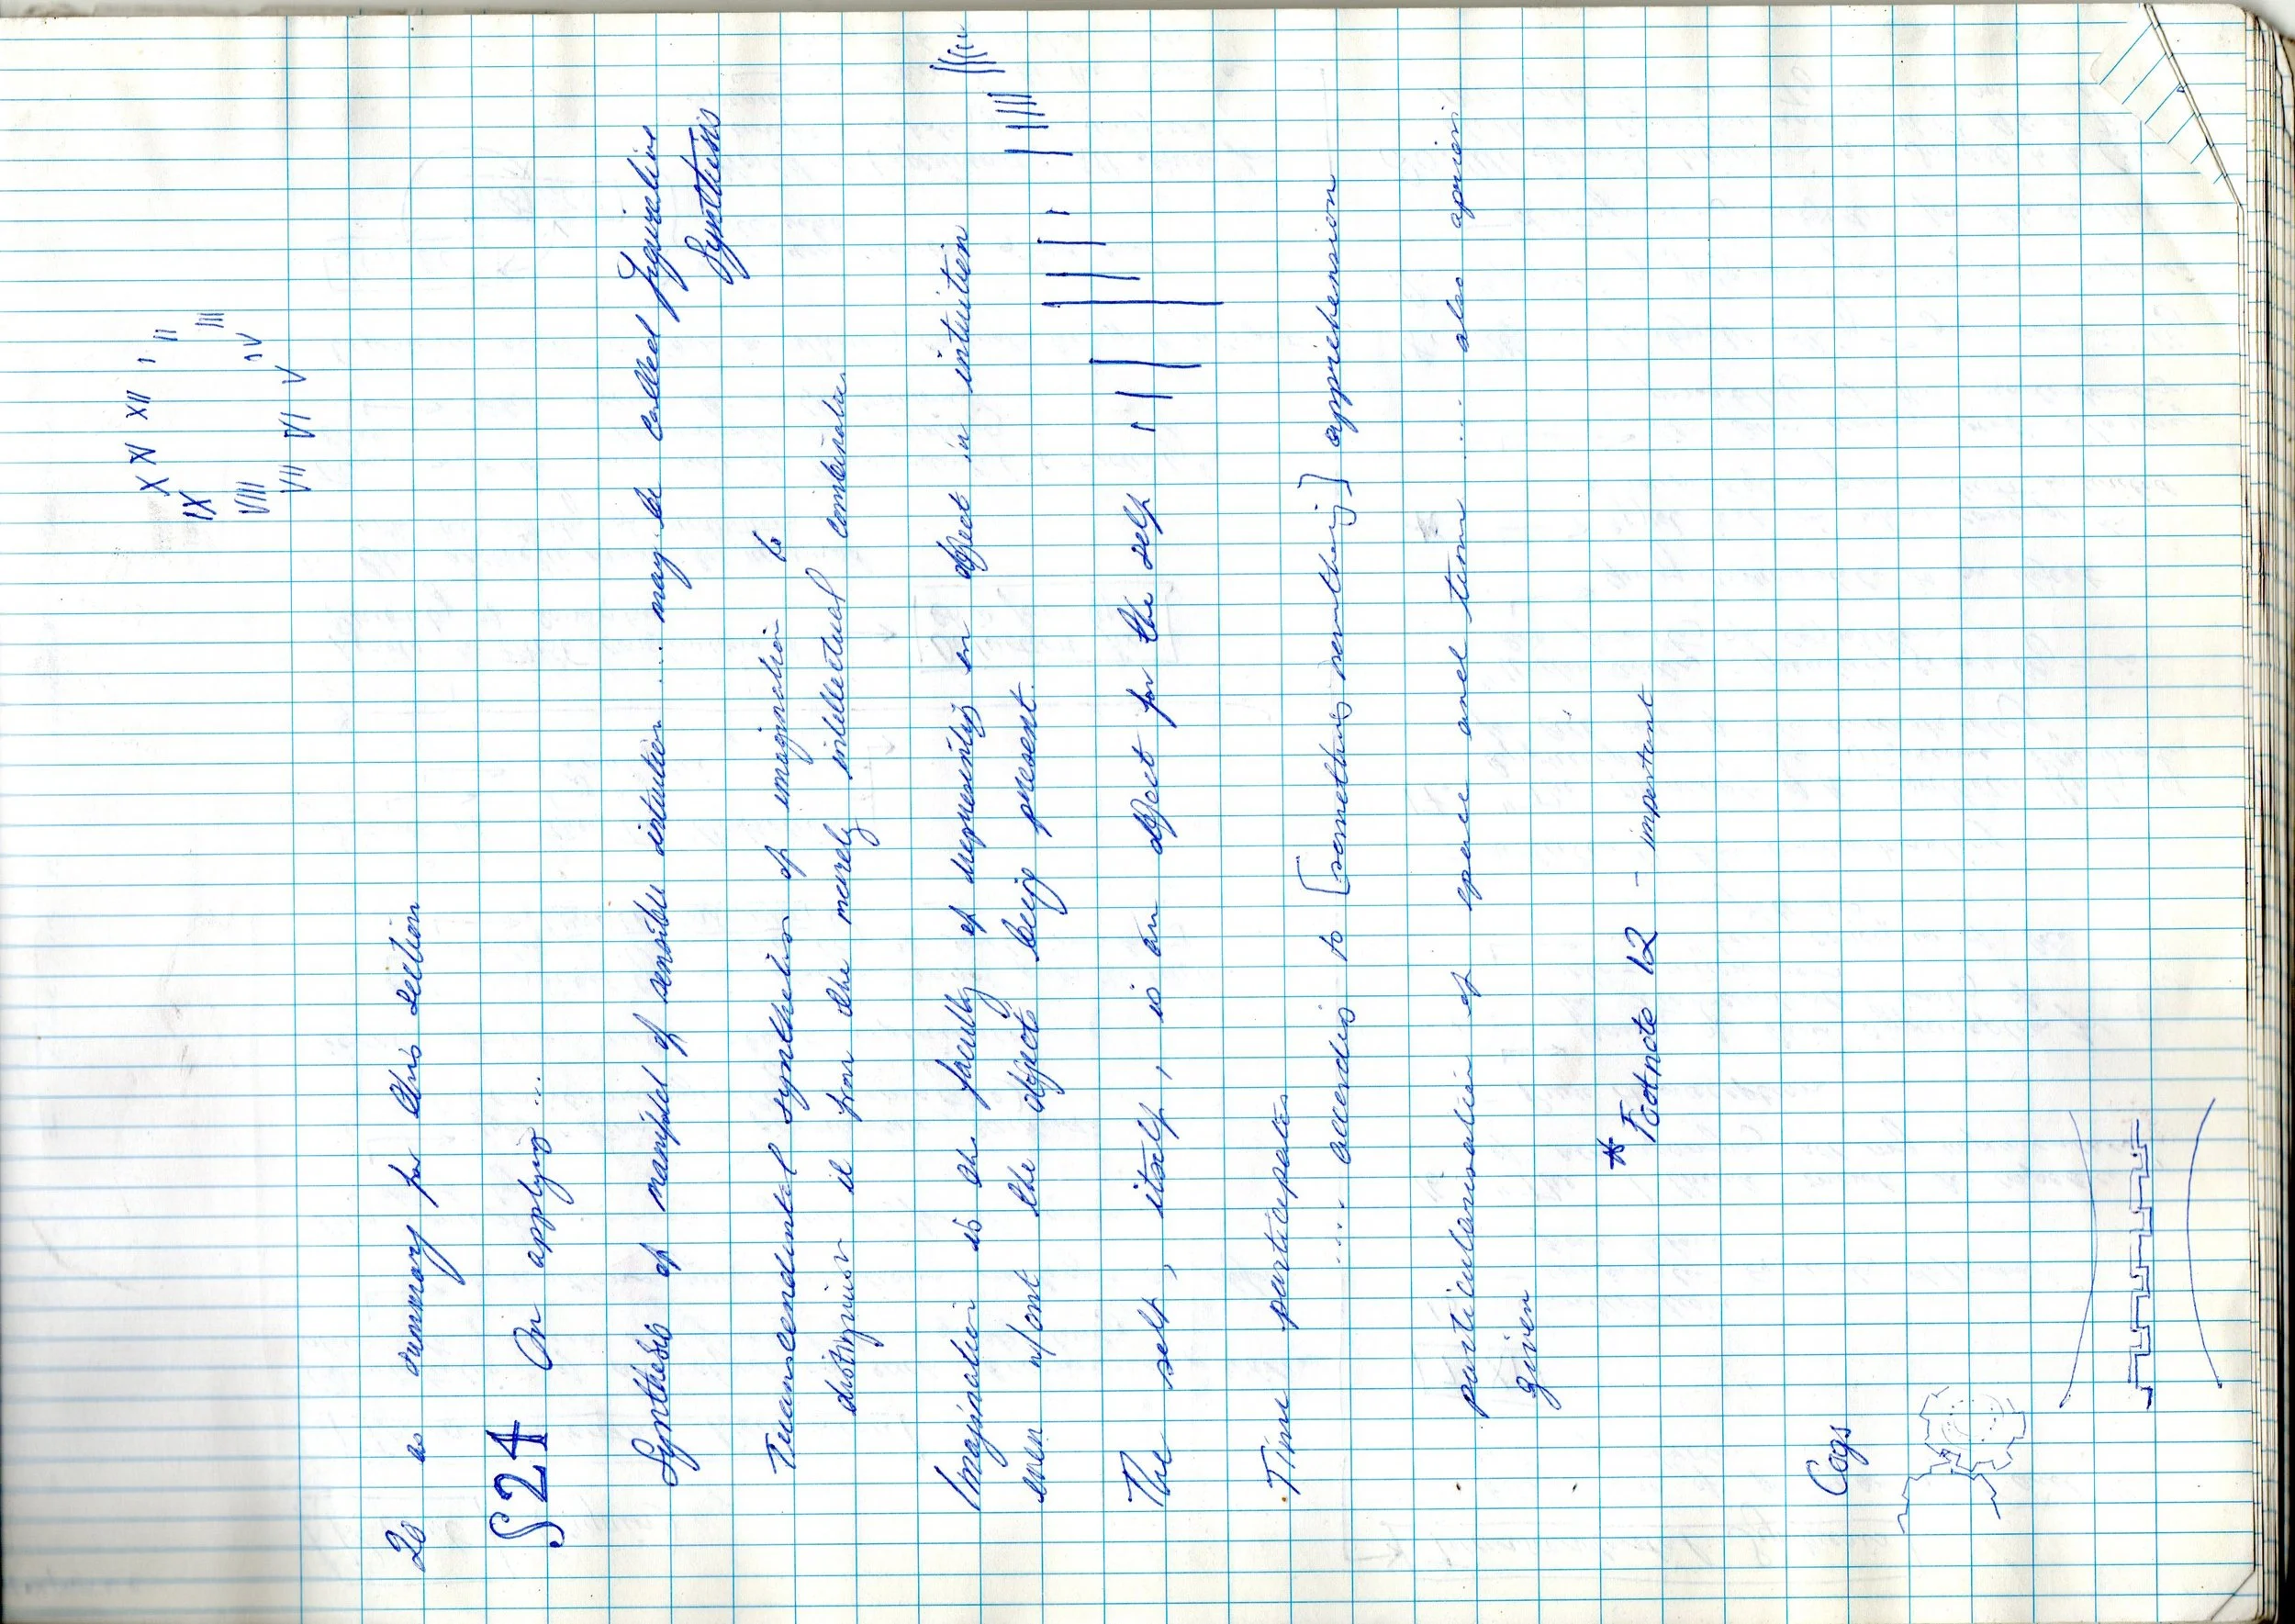 XII
XI I
X II
IX III
VIII IV
VII VI V
20 as summary for this section
§24 On applying ...
Synthesis of manifold of sensible intuition .... may be called figurative
synthesis
Transcendental synthesis of imagination to
distinguish it from the merely intellectual combination.
Imagination is the faculty of representing an object in intuition
even w/out the objects being present.
The self, itself, is an object for the self
Time participates
.... according to [something something] apprehension
particularisation of space and time .... also apriori
given
* Footnote 12 - important
Cogs